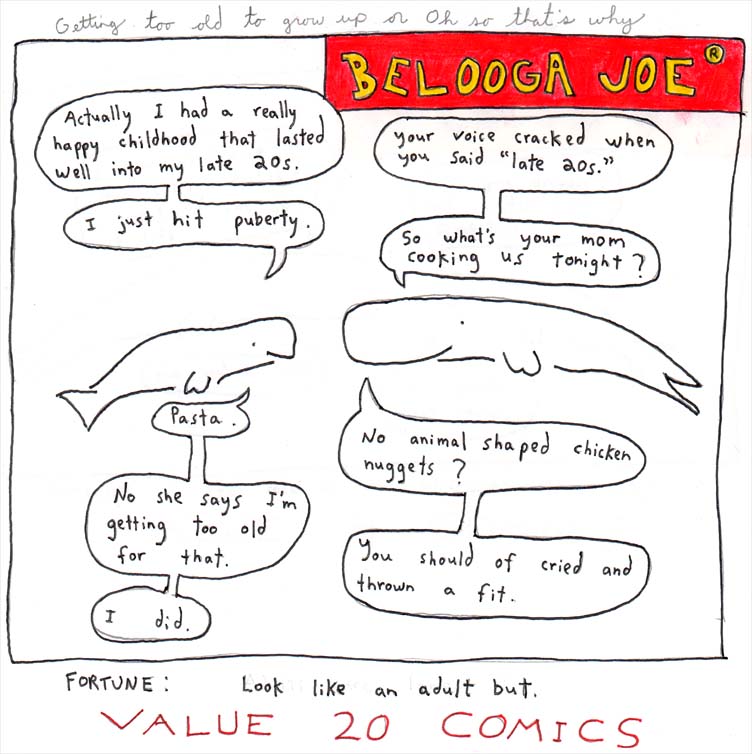 Getting too old to grow up or Oh so that's why
BELOOGA JOE®
Actually I had a really
happy childhood that lasted
well into my late 20s.
I just hit puberty.
your voice cracked when
you said "late 20s."
So what's your mom
cooking us tonight?
Pasta.
No animal shaped chicken
nuggets?
No she says I'm
getting too old
for that.
You should of cried and
thrown a fit.
I did.
FORTUNE: Look like an adult but.
VALUE 20 COMICS